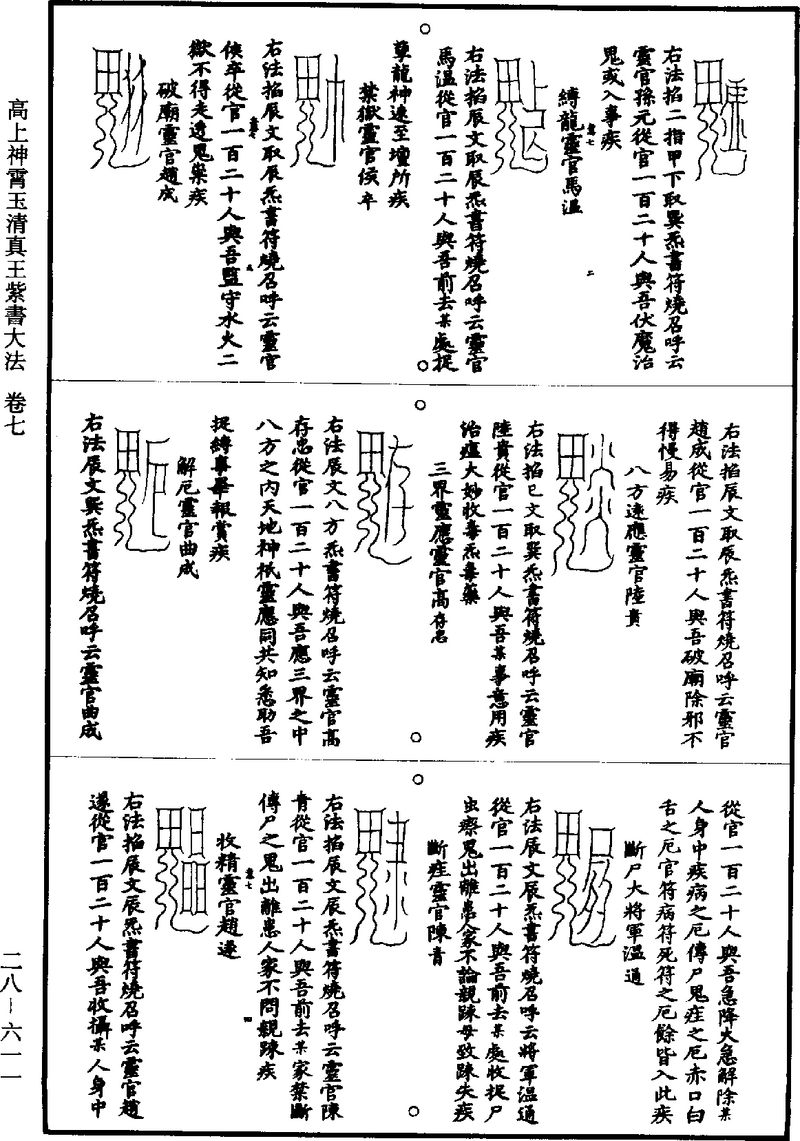 高上神霄玉清真王紫書大法　卷七
右法掐二指甲下取巽炁書符燒召呼云
靈官孫元從官一百二十人與吾伏魔治
鬼或入事疾
縛龍靈官馬溫
卷七
二
右法掐辰文取辰炁書符燒召呼云靈官
馬溫從官一百二十人與吾前去某處捉
孽龍神速至壇所疾
禁獄靈官侯卒
右法掐辰文取辰炁書符燒召呼云靈官
侯卒從官一百二十人與吾監守水火二
獄不得走透鬼藥疾
破廟靈官趙成
右法掐辰文取辰炁書符燒召呼云靈官
趙成從官一百二十人與吾破廟除邪不
得慢易疾
八方速應靈官陸貴
右法掐巳文取巽炁書符燒召呼云靈官
陸貴從官一百二十人與吾某事意用疾
治瘟大妙收毒炁毒藥
三界靈應靈官高存忠
右法辰文八方炁書符燒召呼云靈官高
存忠從官一百二十人與吾應三界之中
八方之內天地神祇靈應同共知悉助吾
捉縛事畢報賞疾
解厄靈官曲成
右法辰文巽炁書符燒召呼云靈官曲成
從官一百二十人與吾急降火急解除某
人身中疾病之厄傳尸鬼疰之厄赤口白
舌之厄官符病符死符之厄餘皆入此疾
斷尸大將軍溫通
右法辰文辰炁書符燒召呼云將軍溫通
從官一百二十人與吾前去某處收捉尸
虫瘵鬼出離患人家不論親踈毋致踈失疾
斷疰靈官陳青
右法掐辰文辰炁書符燒召呼云靈官陳
青從官一百二十人與吾前去某家禁斷
傳尸之鬼出離患人家不問親踈疾
卷七
四
收精靈官趙邃
右法掐辰文辰炁書符燒召呼云靈官趙
邃從官一百二十人與吾收攝某人身中
二八—六一一